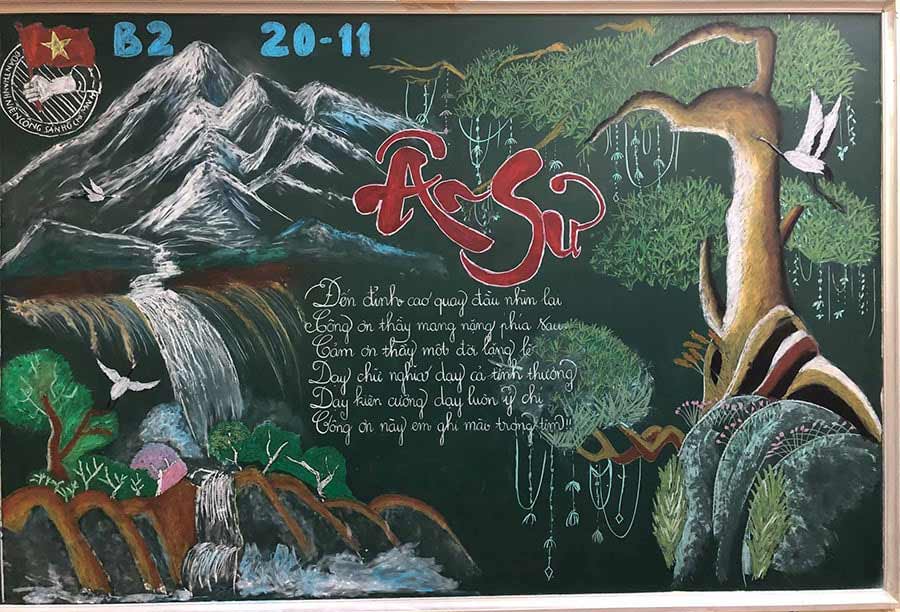 B2 20-11
ĐOÀN THANH NIÊN CỘNG SẢN HỒ CHÍ MINH
Ân Sư
Đến đỉnh cao quay đầu nhìn lại
Công ơn thầy mang nặng phía sau
Cảm ơn thầy một đời lặng lẽ
Dạy chữ nghĩa dạy cả tình thương
Dạy kiên cường dạy luôn ý chí
Công ơn này em ghi mãi trong tim!!